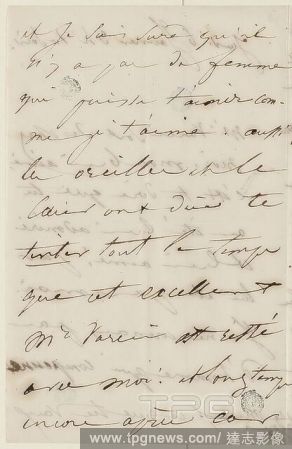 et je suis sûre qu'il
n'y a pas de femme
qui puisse t'aimer com-
me je t'aime. aussi
les oreilles et le
cœur ont dû te
tinter tout le temps
que cet excellent
Mr est resté
avec moi. et longtemps
encore après car
TPG
www.tpgnews.com / 達志影像